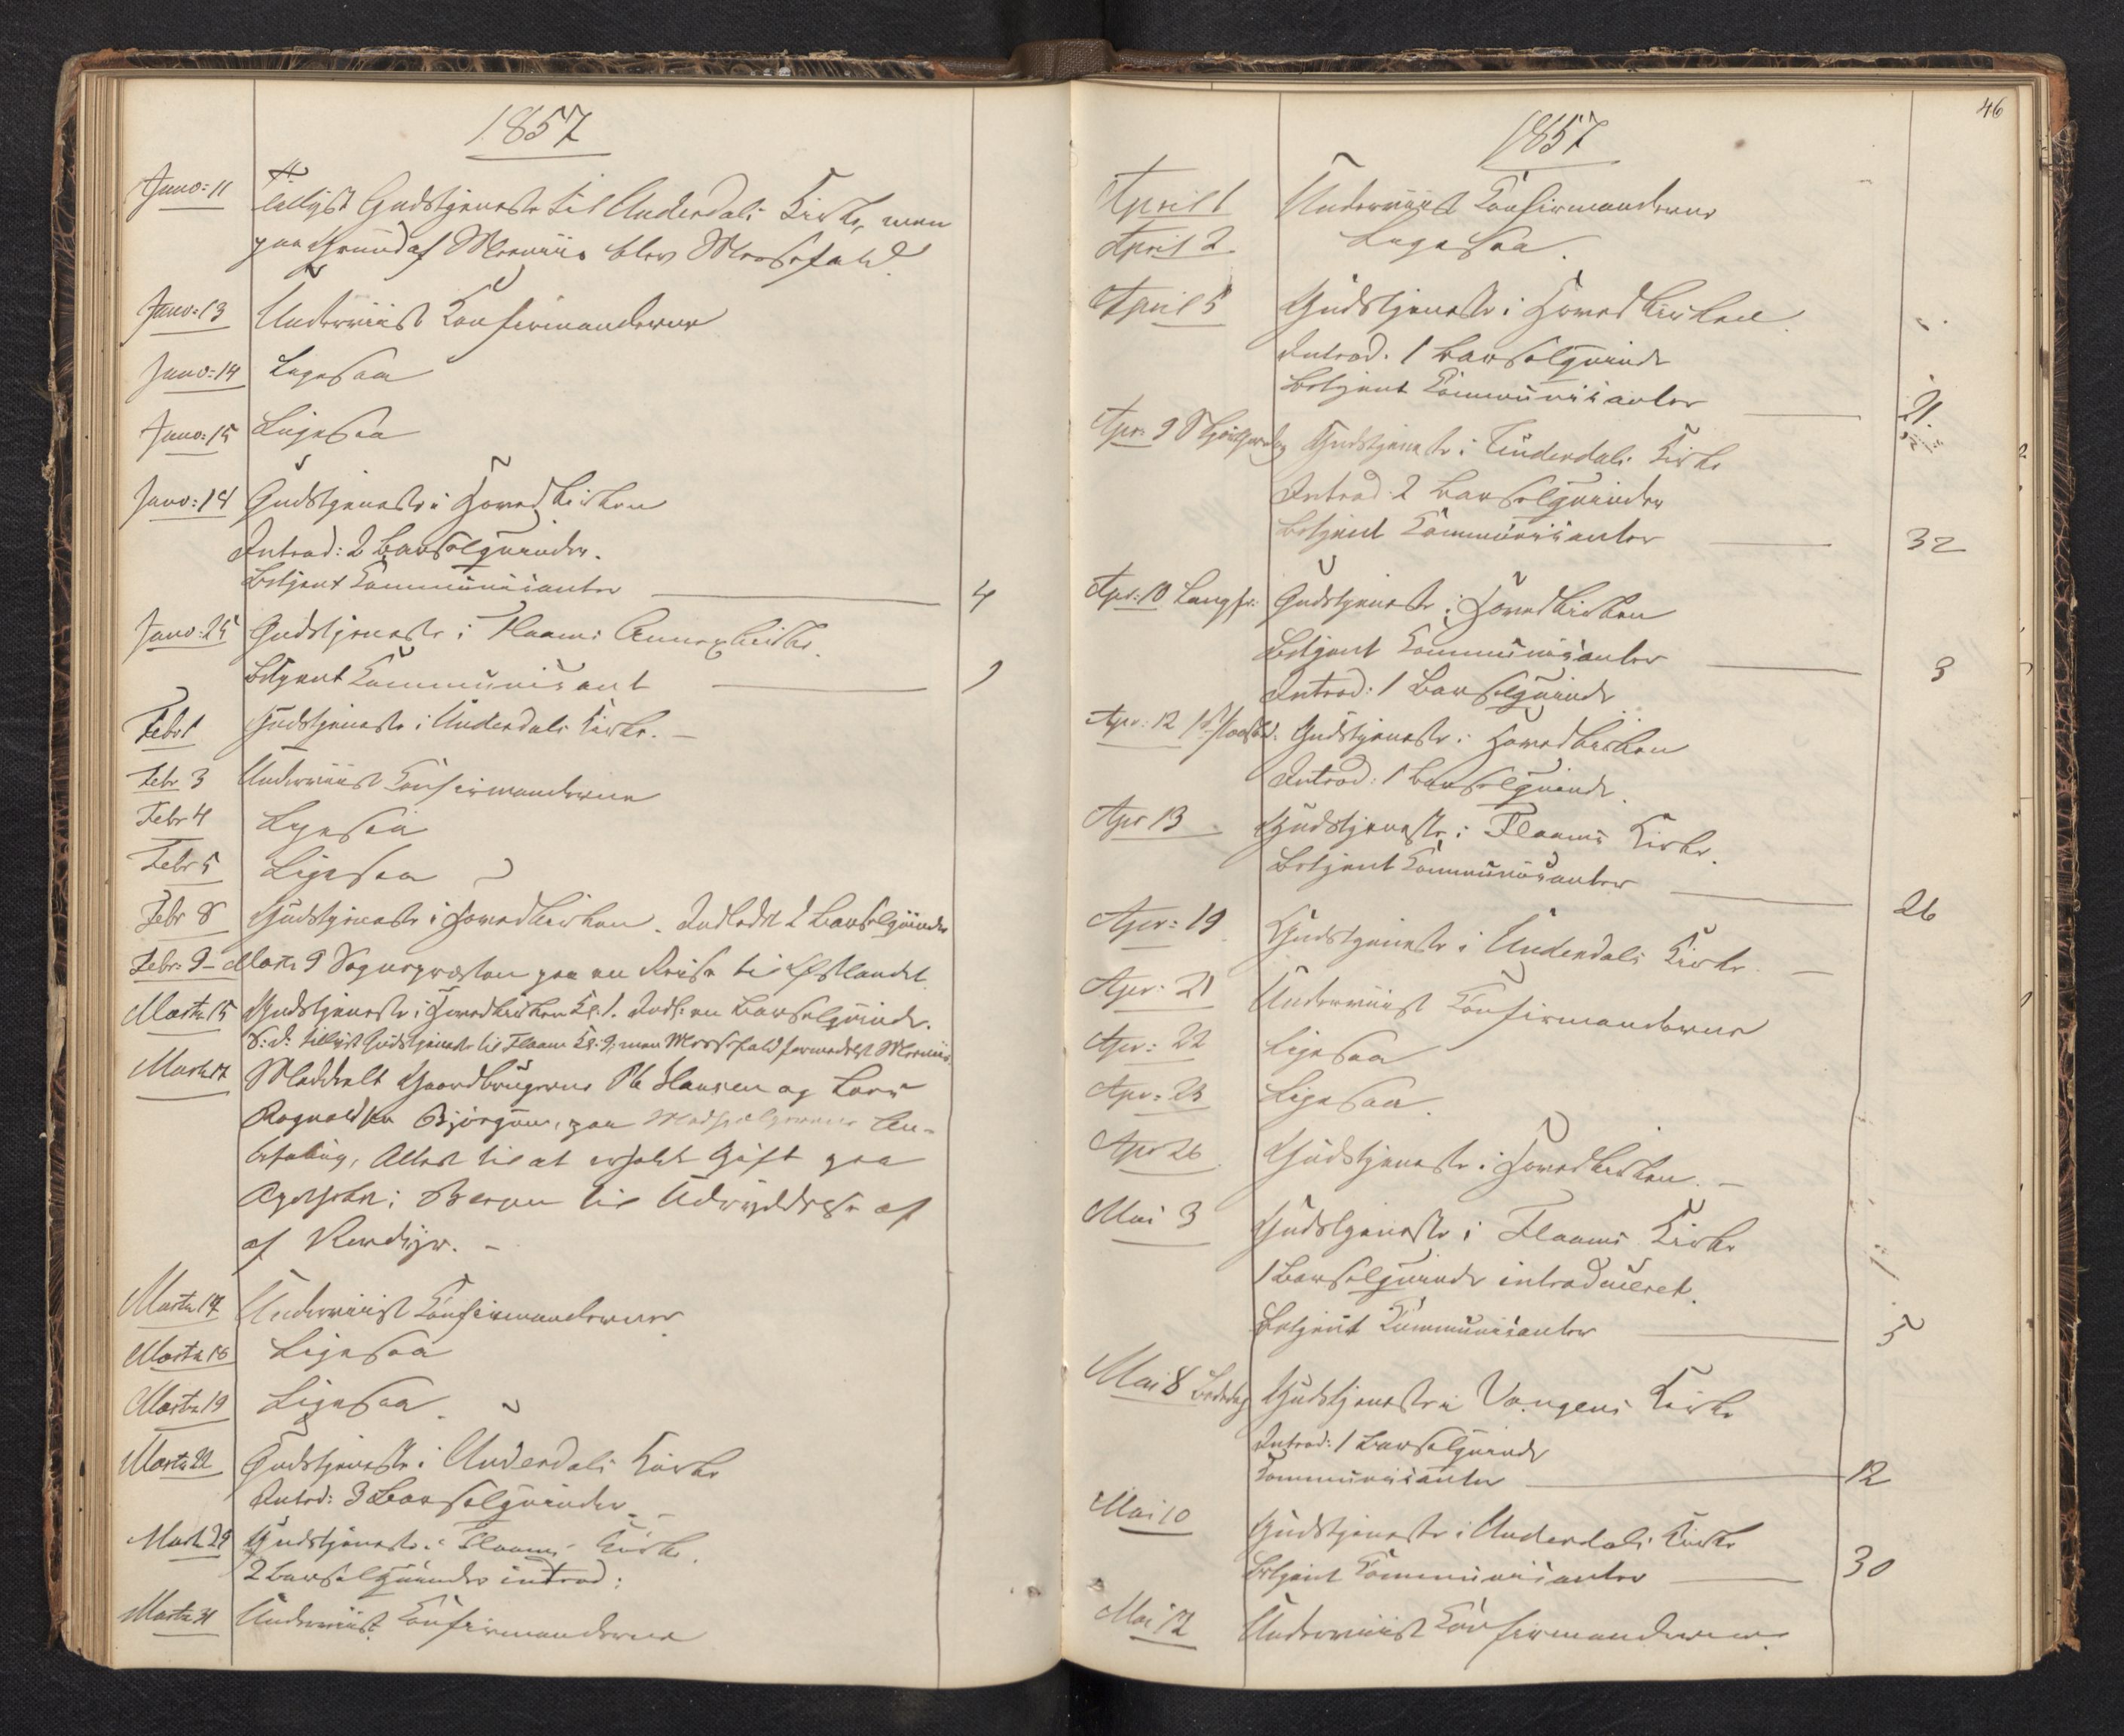 1857
Janv: 11 Tillyst Gudstjeneste til Underdals Kirke, men
paa Grund af Meenïis blev Messefald.
Janv: 13 Underviist Konfirmanderne
Janv: 14 Ligesaa
Janv: 15 Ligesaa
Janv: 18 Gudstjeneste i Hovedkirken
Introd: 2 Barselqvinder.
Betjent Communicanter 4
Janv: 25 Gudstjeneste i Flaams Annexkirke.
Betjent Communicant 1
Febr 1 Gudstjeneste i Underdals Kirke. –
Febr 3 Underviist Confirmanderne
Febr 4 Ligesaa
Febr 5 Ligesaa
Febr 8 Gudstjeneste i Hovedkirken. Indledet 2 Barselqvinder
Febr: 9 – Marts 9 Sognepræsten paa en Reise til Østlandet.
Marts 15 Gudstjeneste i Hovedkirken Kl. 1. Indl: en Barselqvinde.
S: D: tillyst Gudstjeneste til Flaam Kl: 9, men Messefald formedelst Meeniis.
Marts 17 Meddeelt Gaardbrugerne Ole Hansen og Lars
Ragnvaldsen Bjørgum, paa Medhjælpernes An-
befaling, Attest til at erholde Gift paa
Apotheket i Bergen til Udryddelse af
af Rovdyr. –
Marts 17 Underviist Confirmanderne
Marts 18 Ligesaa
Marts 19 Ligesaa
Marts 22 Gudstjeneste i Underdals Kirke
Introd: 3 Barselqvinder. –
Marts 29 Gudstjeneste i Flaams Kirke.
2 Barselqvinder introd:
Marts 31 Underviist Confirmanderne
46
1857
April 1 Underviist Confirmanderne
April 2. Ligesaa.
April 5 Gudstjeneste i Hovedkirken.
Introd. 1 Barselqvinde
Betjent Communicanter 21.
Apr: 9 Skjærthorsdag Gudstjeneste i Underdals Kirke
Introd: 2 Barselqvinder
Betjent Communicanter 32
Apr: 10 Langfr: Gudstjeneste i Hovedkirken
Betjent Communicanter 3
Introd: 1 Barselqvinde
Apr: 12 1st Paaskd: Gudstjeneste i Hovedkirken
Introd: 1 Barselqvinde.
Apr 13 Gudstjeneste i Flaams Kirke.
Betjent Communicanter 26
Apr: 19 Gudstjeneste i Underdals Kirke. –
Apr: 21 Underviist Confirmanderne
Apr: 22 Ligesaa
Apr: 23 Ligesaa.
Apr 26 Gudstjeneste i Hovedkirken. –
Mai 3 Gudstjeneste i Flaams Kirke
1 Barselqvinde introduceret.
Betjent Communicanter 5
Mai 8 Bededag Gudstjeneste i Vangens Kirke
Introd: 1 Barselqvinde
Communicanter 12
Mai 10 Gudstjeneste i Underdals Kirke
Betjent Communicanter 30
Mai 12 Underviist Confirmanderne.